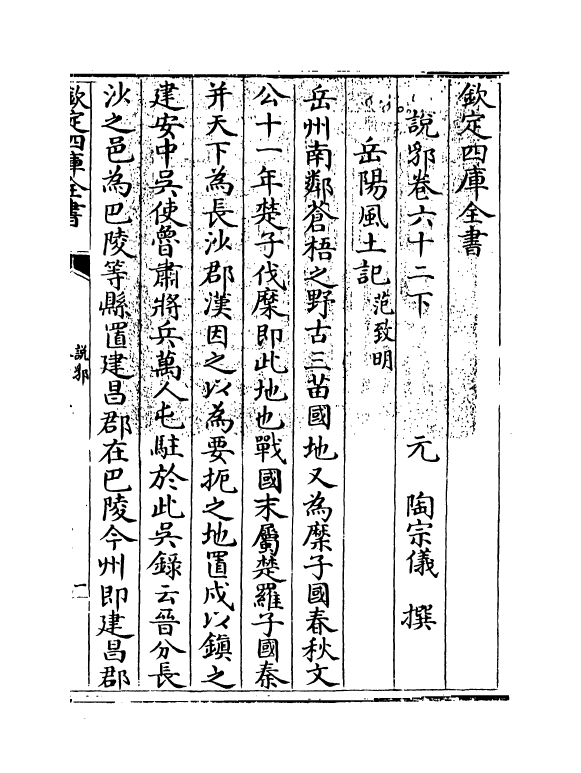 欽定四庫全書
說郛卷六十二下　元　陶宗儀　撰
岳陽風土記　范致明
岳州南鄰蒼梧之野古三苗國地又為麋子國春秋文
公十一年楚子伐麋即此地也戰國末屬楚羅子國秦
并天下為長沙郡漢因之以為要扼之地置戍以鎮之
建安中吳使魯肅將兵萬人屯駐於此吳錄云晉分長
沙之邑為巴陵等縣置建昌郡在巴陵今州即建昌郡
欽定四庫全書
說郛
一